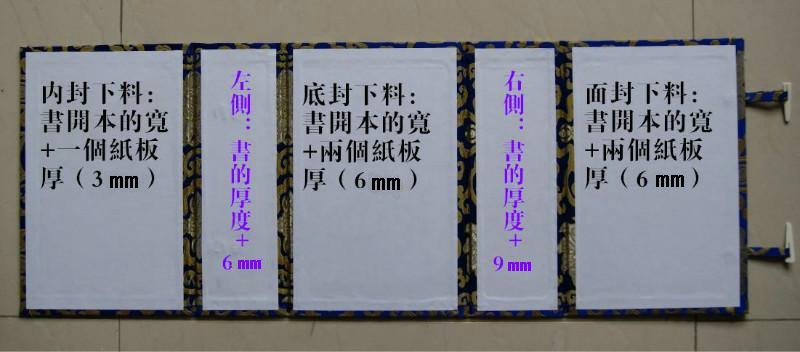 内封下料:
書開本的寬
+一個紙板
厚(3mm)
左側:書的厚度+
6mm
底封下料:
書開本的寬
+兩個紙板
厚(6mm)
右側:書的厚度+
9mm
面封下料:
書開本的寬
+兩個紙板
厚(6mm)